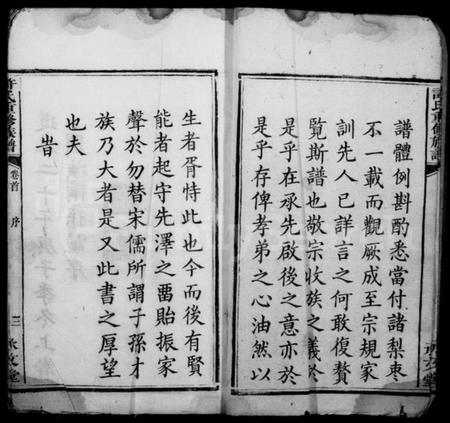 譜體例斟酌悉當付諸梨枣
不一載而觀厥成至宗規家
訓先人已詳言之何敢復贅
覽斯譜也敬宗收族之義於
是乎在承先啟後之意亦於
是乎存俾孝弟之心油然以
生者胥恃此也今而後有賢
能者起守先澤之畱貽振家
聲於勿替宋儒所謂子孫才
族乃大者是又此書之厚望
也夫
旹
許氏重修族譜
卷首
序
三
承文堂